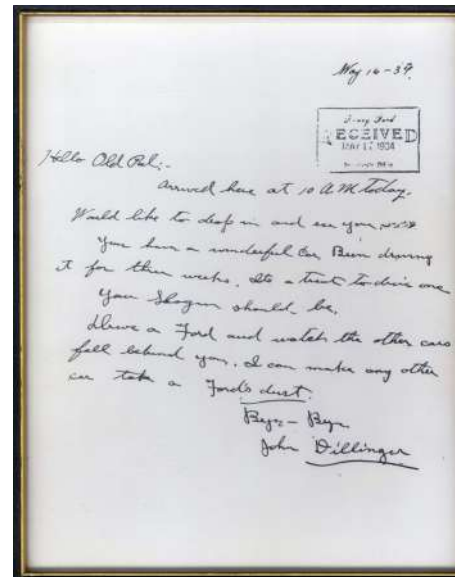 May 16-34.
Henry Ford
RECEIVED
MAY 17 1934
Hello Old Pal:-
Arrived here at 10 AM today.
Would like to drop in and see you
You have a wonderful car. Been driving
it for three weeks. Its a treat to drive one
Your Slogan should be.
Drive a Ford and watch the other cars
fall behind you. I can make any other
car take a Ford's dust.
Bye - Bye
John Dillinger